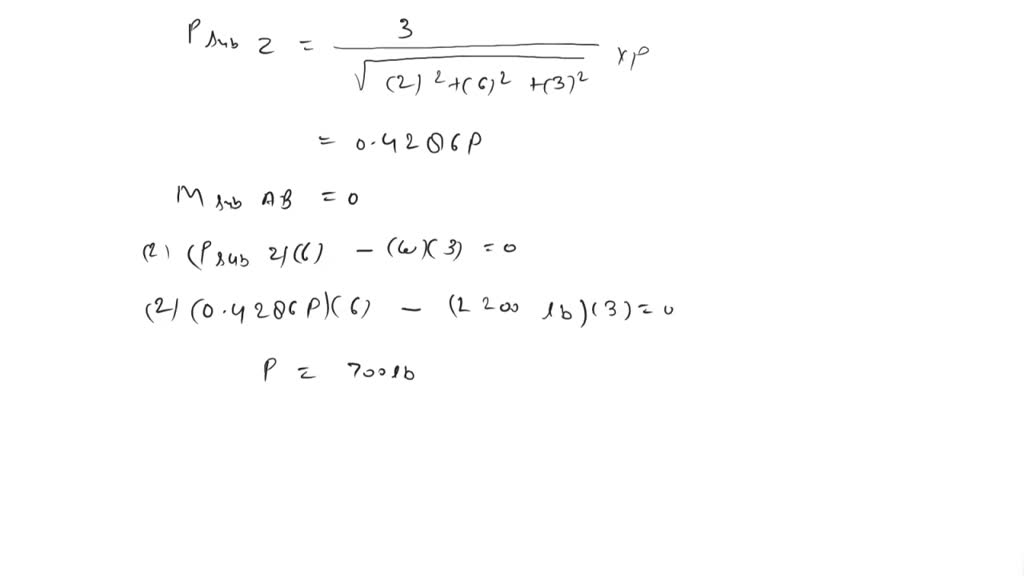 P sub z = 3 / √((2)² + (6)² + (3)²) × P
= 0.4286P
M sub AB = 0
(2) (P sub z)(6) - (W)(3) = 0
(2) (0.4286P)(6) - (1200 lb)(3) = 0
P = 700 lb